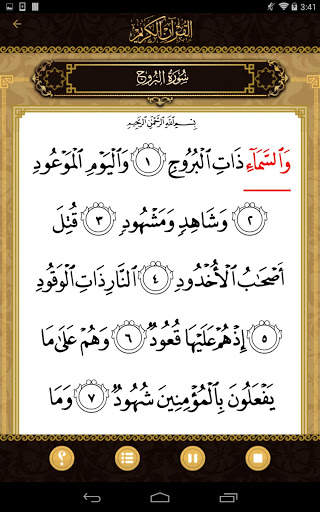 3:41
القرآن الكريم
سُورَةُ البُرُوجِ
بِسْمِ اللَّهِ الرَّحْمَٰنِ الرَّحِيمِ
وَٱلسَّمَآءِ ذَاتِ ٱلْبُرُوجِ ١ وَٱلْيَوْمِ ٱلْمَوْعُودِ
٢ وَشَاهِدٍ وَمَشْهُودٍ ٣ قُتِلَ
أَصْحَابُ ٱلْأُخْدُودِ ٤ ٱلنَّارِ ذَاتِ ٱلْوَقُودِ
٥ إِذْ هُمْ عَلَيْهَا قُعُودٌ ٦ وَهُمْ عَلَىٰ مَا
يَفْعَلُونَ بِٱلْمُؤْمِنِينَ شُهُودٌ ٧ وَمَا